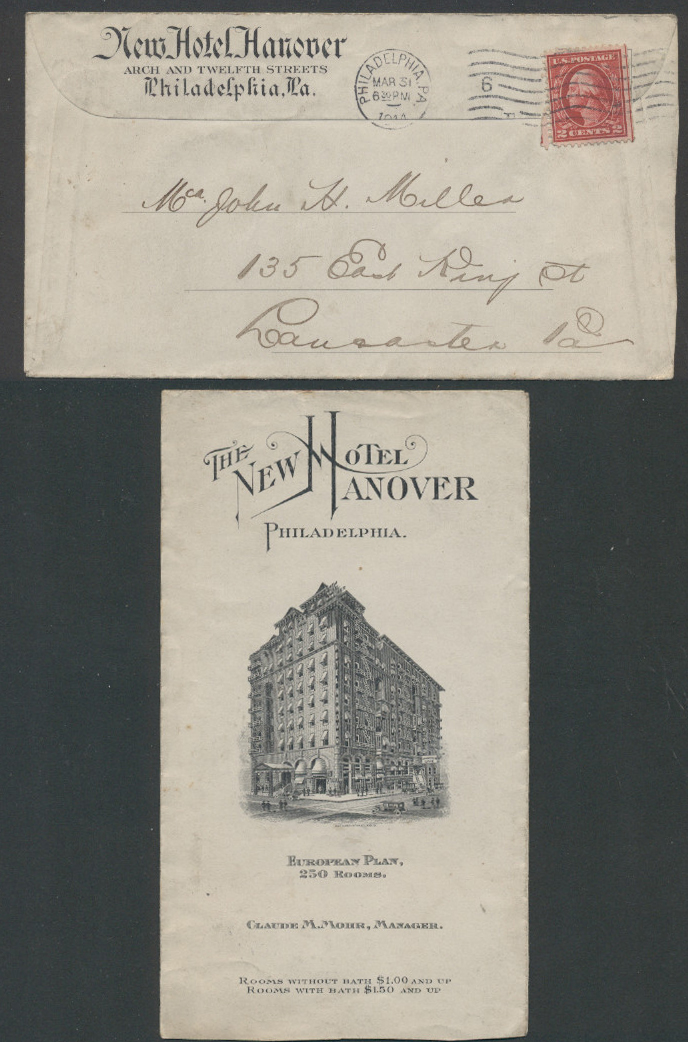 New Hotel Hanover
ARCH AND TWELFTH STREETS
Philadelphia, Pa.
PHILADELPHIA, PA.
MAR 31
6 30 PM
6
U.S. POSTAGE
2 CENTS 2
John H. Miller
135 East King St
Lancaster Pa
THE NEW HOTEL HANOVER
PHILADELPHIA.
EUROPEAN PLAN,
250 ROOMS.
CLAUDE M. MOHR, MANAGER.
ROOMS WITHOUT BATH $1.00 AND UP
ROOMS WITH BATH $1.50 AND UP